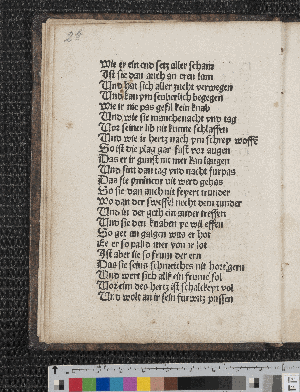 24
Wie er ein end setz aller scham
Ist sie dan auch an eren lam
Und hat sich aller zucht verwegen
Und kan ym seuberlich begegen
Wie ir nie pas gefil kein knab
Und wie sie manche nacht und tag
Vor seiner lib nit kunne schlaffen
Und wie ir hertz nach ym schrey woffē
So ist die plag gar fast vor augen
Das er ir gunst nit mer kan laugen
Und sint dan tag und nacht furpas
Das sie
So sie dan auch nit feyert
Wo dan der sweffel recht dem zunder
Und in der geth ein ander treffen
Und sie den knaben ye wil effen
So get im galgen was er hot
Ee er so pald mer von ir lot
Ist aber sie so frum der ern
Das sie seins schmeichēs nit hort gern
Und wert sich alls ein frume sol
Wor eim des hertz ist schalckeyt vol
Und wolt an ir sein furwitz pussen